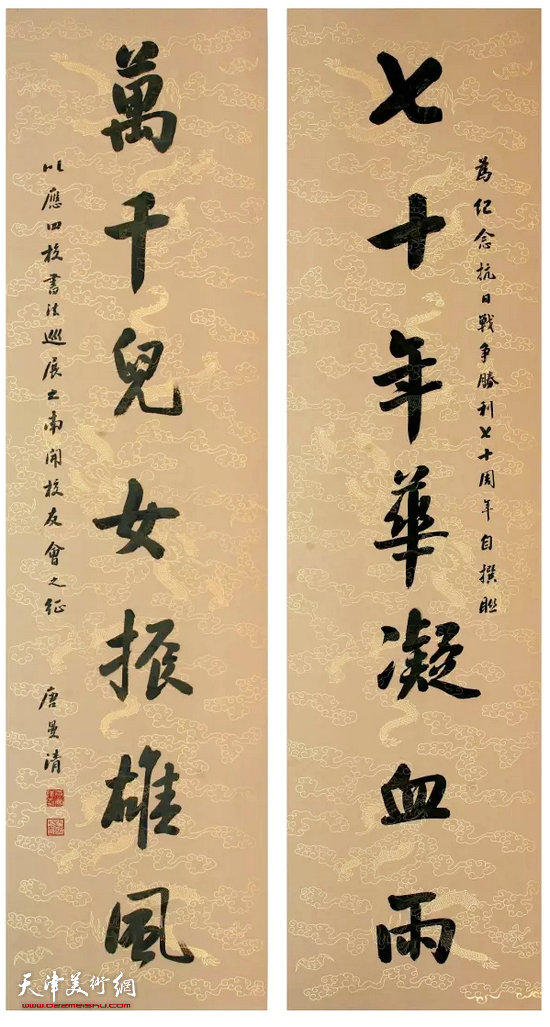 七十年華凝血雨
為紀念抗日戰爭勝利七十周年自撰聯
萬千兒女振雄風
以應四校書法巡展之南開校友會之征
唐曼清
天津美術網
www.022meishu.com